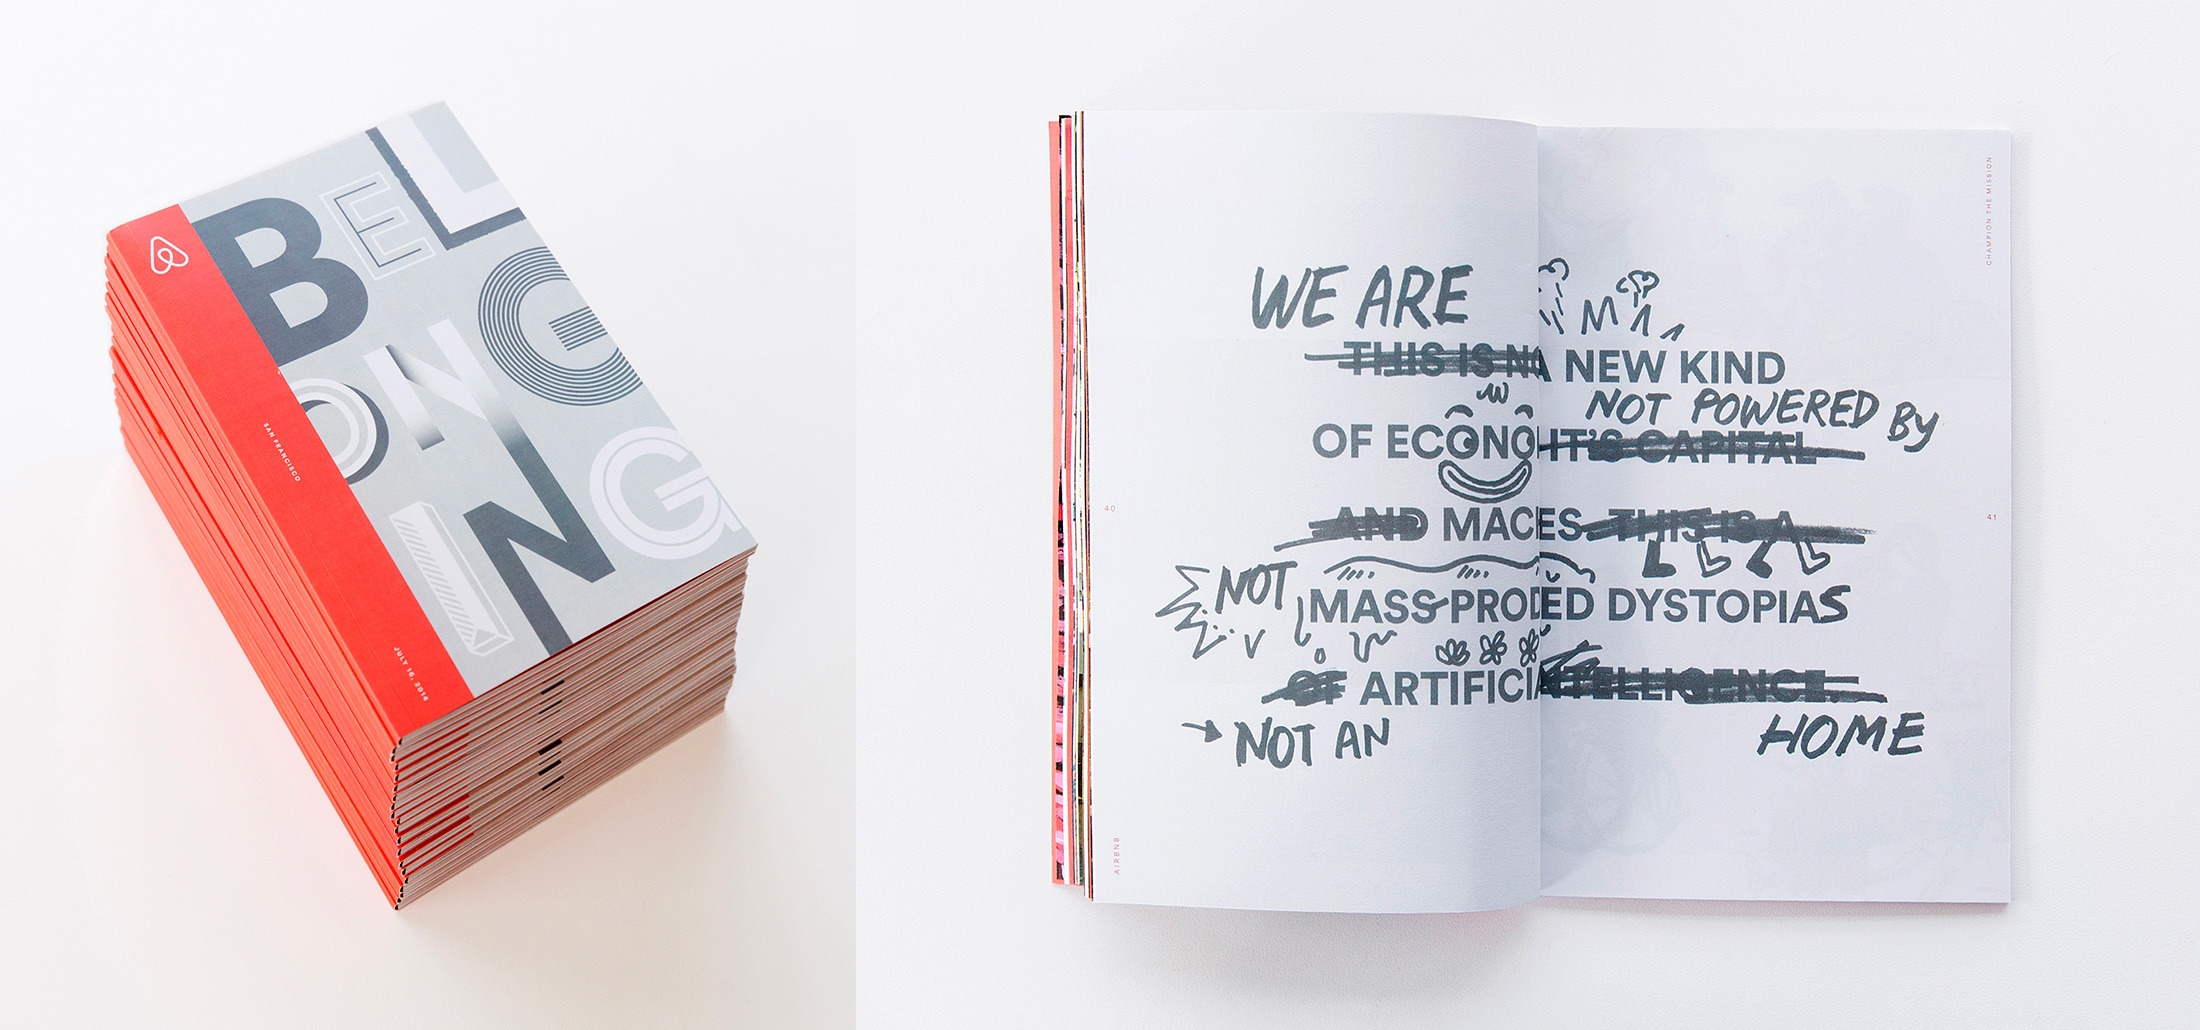 BELONGING
SAN FRANCISCO
JULY 16, 2014
CHAMPION THE MISSION
WE ARE
THIS IS NA NEW KIND
NOT POWERED BY
OF ECONO IT'S CAPITAL
40
41
AND MACES. THIS IS A
NOT
MASS-PRODED DYSTOPIAS
OF ARTIFICIA INTELLIGENCE.
NOT AN
HOME
AIRBNB